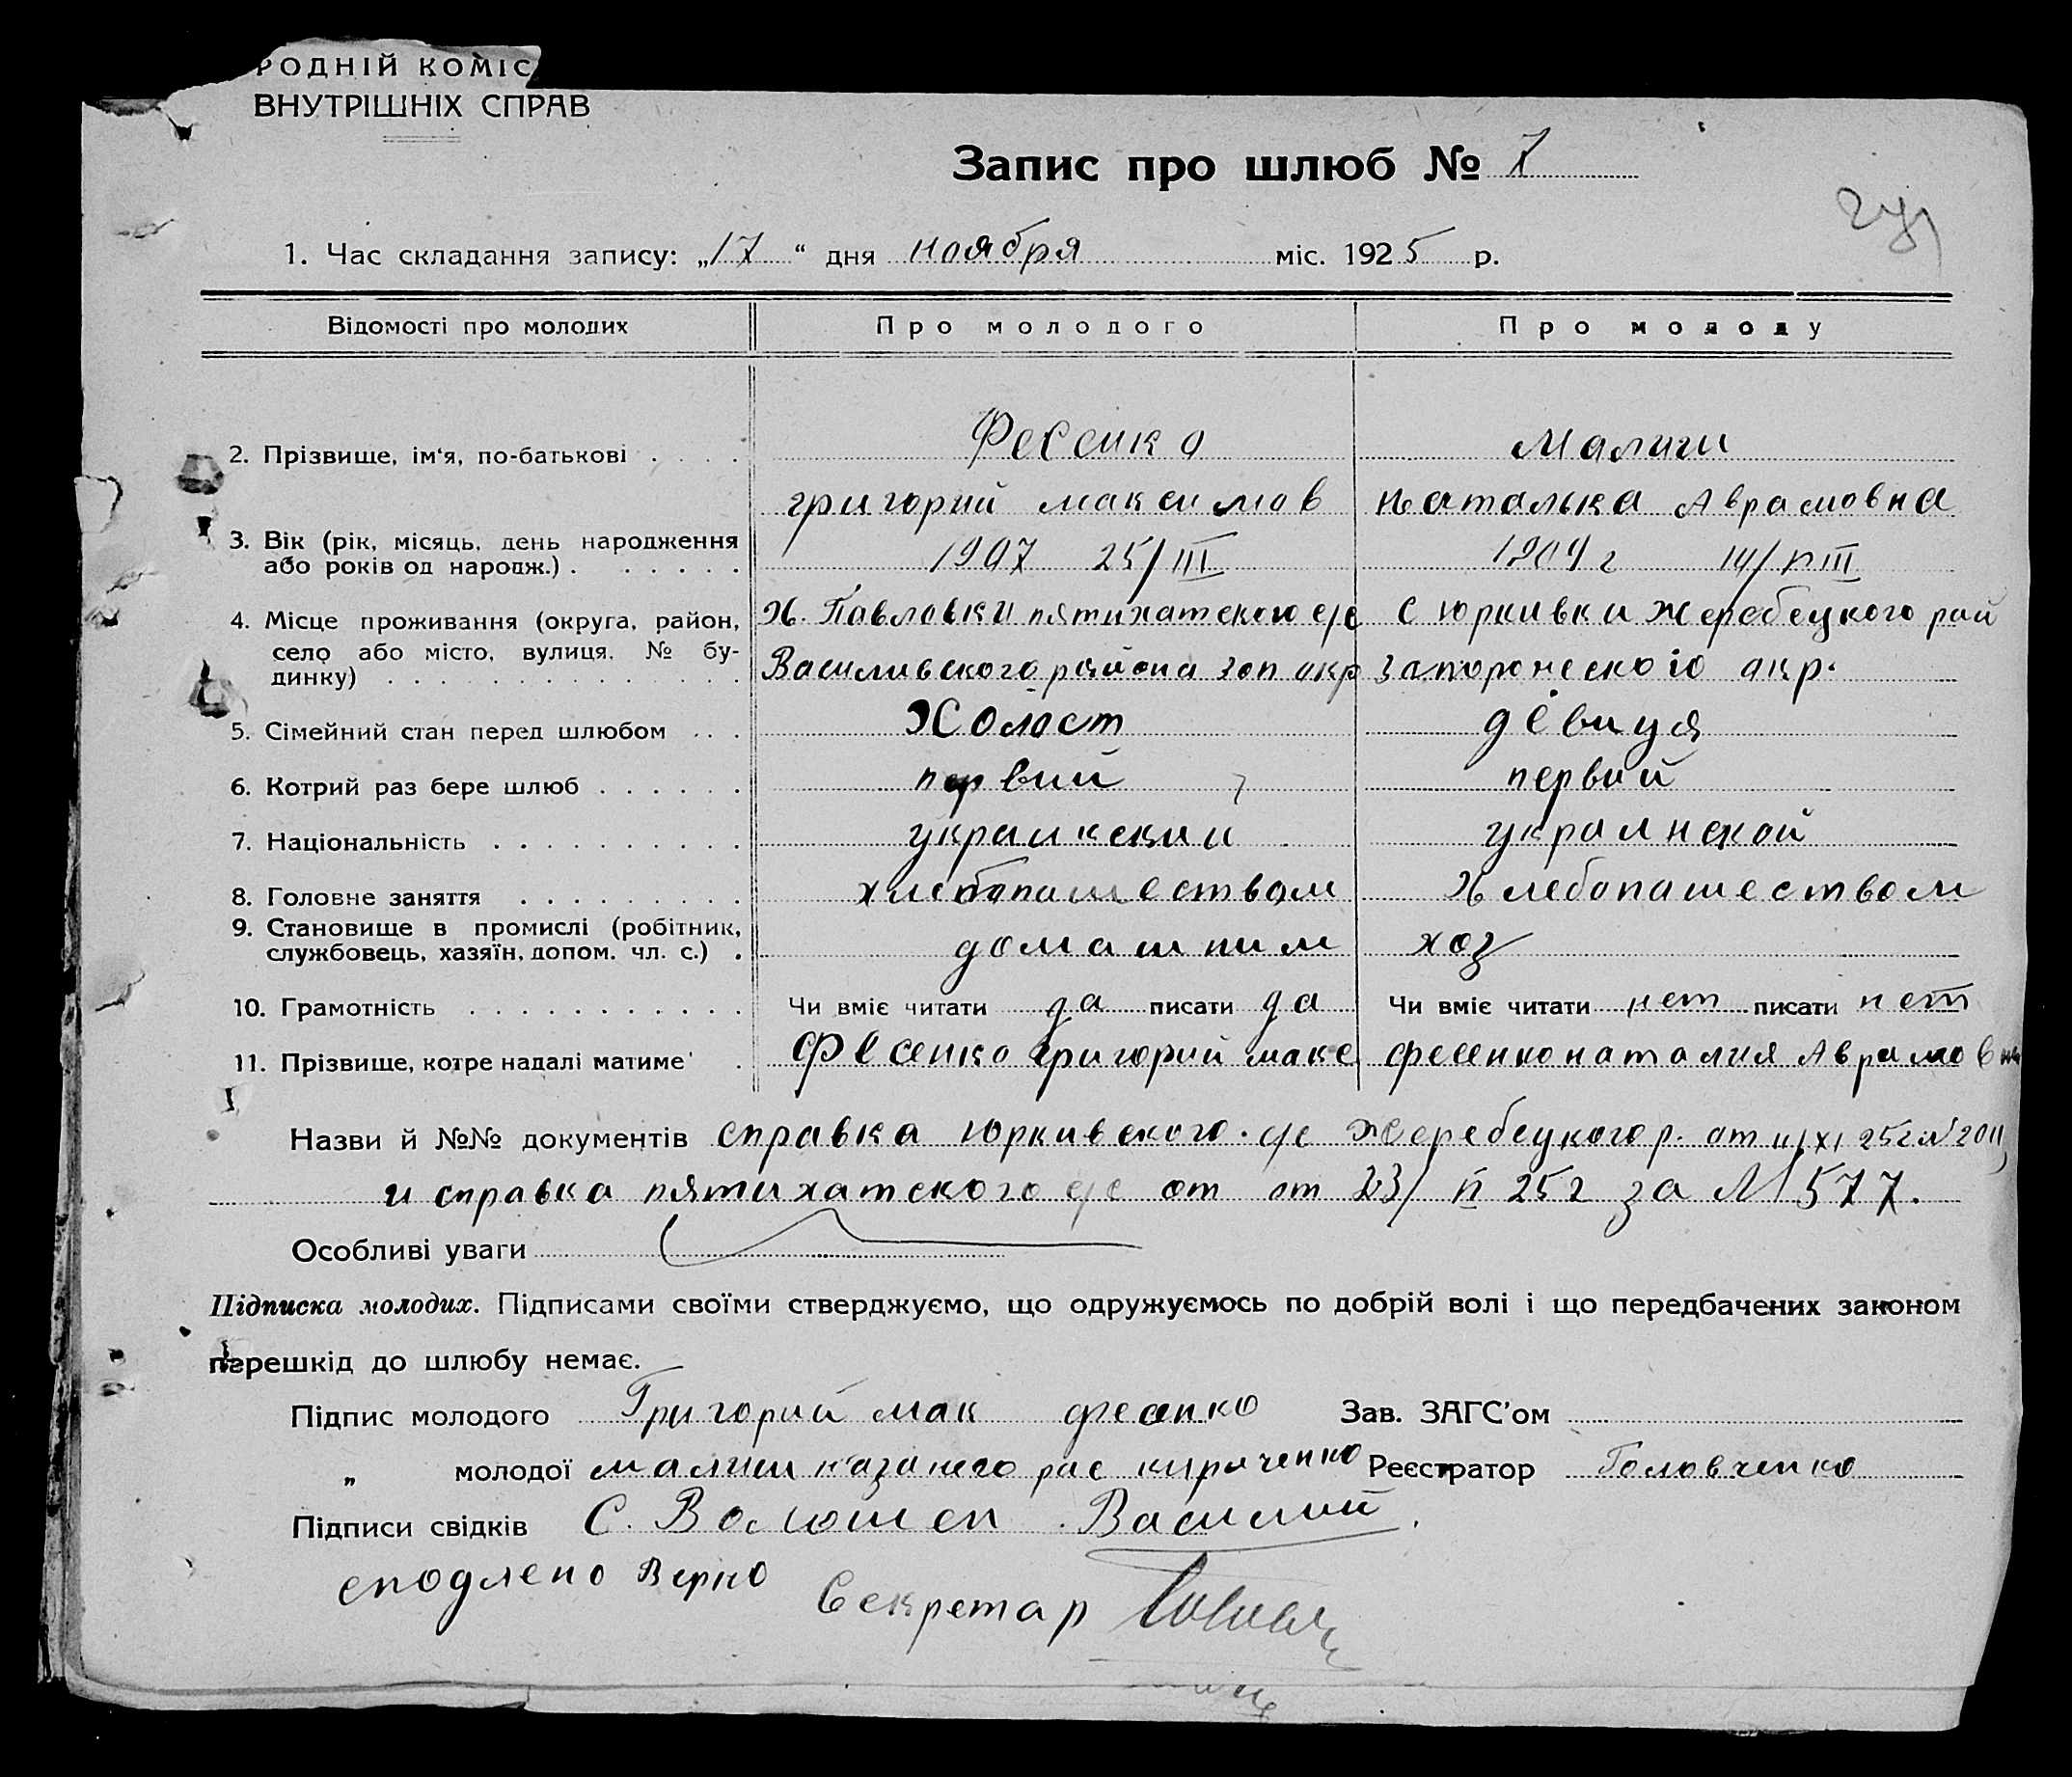 РОДНІЙ КОМІС
ВНУТРІШНІХ СПРАВ
Запис про шлюб № 7
1. Час складання запису: „17“ дня ноября міс. 1925 р.
Відомості про молодих Про молодого Про молоду
2. Прізвище, ім‘я, по-батькові Фесенко Малиш
григорий максимов Наталка Аврамовна
3. Вік (рік, місяць, день народження
або років од народж.) 1907 25/III 1904 г
4. Місце проживання (округа, район, Х. Павловки пятихатского с/с с юркивки жеребецкого рай
село або місто, вулиця, № бу- Василивского района зап окр запорожского окр.
динку)
5. Сімейний стан перед шлюбом Холост девиця
6. Котрий раз бере шлюб первий первий
7. Національність украинский украинской
8. Головне заняття хлебопашеством Хлебопашеством
9. Становище в промислі (робітник,
службовець, хазяїн, допом. чл. с.) домашним хоз
10. Грамотність Чи вміє читати да писати да Чи вміє читати нет писати нет
11. Прізвище, котре надалі матиме Фесенко Григорий макс фесенко наталия Аврамовна
Назви й №№ документів справка юркивского с/с жеребецкого р. от 11/XI 25г № 2011
и справка пятихатского с/с от от 23/ 25 г за № 577.
Особливі уваги
Підписка молодих. Підписами своїми стверджуємо, що одружуємось по добрій волі і що передбачених законом
перешкід до шлюбу немає.
Підпис молодого Григорий мак фесенко Зав. ЗАГС’ом
„ молодої малиш рас кириченко Реєстратор Головченко
Підписи свідків С. Волошен Василий
Верно Секретар